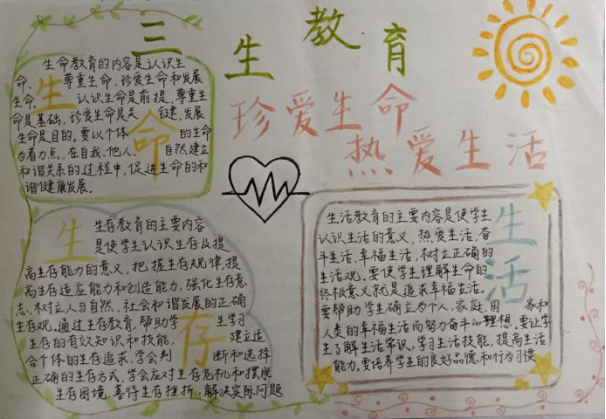 三生教育
珍爱生命
热爱生活
生命
生命教育的内容是认识生
命、尊重生命、珍爱生命和发展
生命。认识生命是前提,尊重生
命是基础,珍爱生命是关键,发展
生命是目的。要以个体的生命
为着力点,在自我、他人、自然建立
和谐关系的过程中,促进生命的和
谐健康发展。
生存
生存教育的主要内容
是使学生认识生存及提
高生存能力的意义,把握生存规律,提
高生存适应能力和创造能力,强化生存意
志,树立人与自然、社会和谐发展的正确
生存观。通过生存教育,帮助学生学习
生存的有效知识和技能,建立适
合个体的生存追求,学会判断和选择
正确的生存方式,学会应对生存危机和摆脱
生存困境,善待生存挫折,解决实际问题
生活
生活教育的主要内容是使学生
认识生活的意义,热爱生活,奋
斗生活,幸福生活,树立正确的
生活观。要使学生理解生命的
终极意义就是追求幸福生活。
要帮助学生确立为个人、家庭、国家和
人类的幸福生活而努力奋斗的理想。要让学
生了解生活常识,学习生活技能,提高生活
能力,要培养学生的良好品德和行为习惯